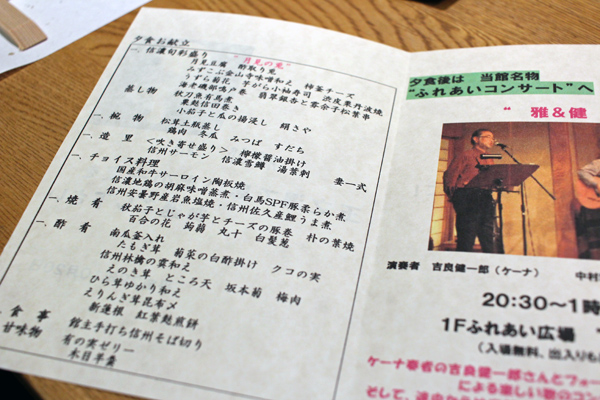 夕食お献立
一、信濃旬彩盛り “月見の兎”
月見豆腐 酢取り兎
みずこぶ金山寺味噌和え 柿釜チーズ
うずら菊花 芋がら小袖寿司 渋皮栗丹波焼
海老磯部鳴戸巻 翡翠銀杏と零余子松葉串
蒸し物 秋刀魚有馬煮
粟麩信田巻き
小茄子と瓜の揚浸し 絹さや
一、椀物 松茸土瓶蒸し
鶏肉 冬瓜 みつば すだち
一、造里 <吹き寄せ盛り> 檸檬醤油掛け
信州サーモン 信濃雪鱒 湯葉刺 妻一式
一、チョイス料理
国産和牛サーロイン陶板焼
信濃地鶏の胡麻味噌蒸煮・白馬SPF豚柔らか煮
信州安曇野産岩魚塩焼・信州佐久産鯉うま煮
一、焼肴 秋茄子とじゃが芋とチーズの豚巻 朴の葉焼
百合の花 蒟蒻 丸十 白髪葱
一、酢肴 南瓜釜入れ
たもぎ茸 菊菜の白酢掛け クコの実
信州林檎の雲和え
えのき茸 ところ天 坂本菊 梅肉
ひら茸ゆかり和え
えりんぎ茸昆布〆
新蓮根 紅葉麩煎餅
食事 館主手打ち信州そば切り
甘味物 有の実ゼリー
木目羊羹
夕食後は 当館名物
“ふれあいコンサート”へ
“ 雅&健
演奏者 吉良健一郎(ケーナ) 中村
20:30~1時
1Fふれあい広場 “
(入場無料、出入りも
ケーナ奏者の吉良健一郎さんとフォー
による楽しい歌のコン